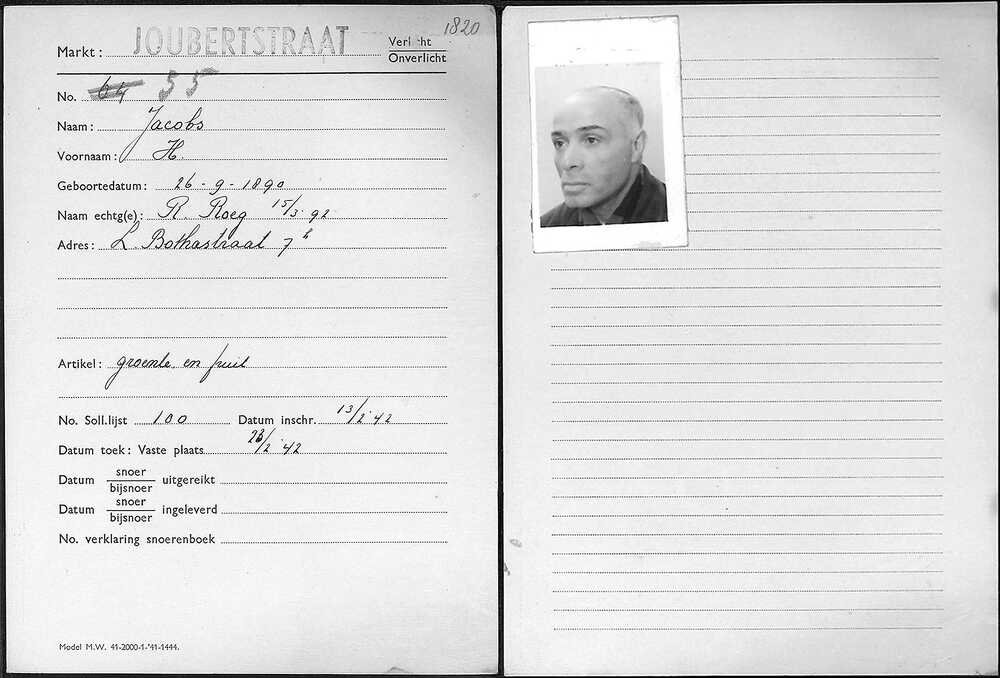 1820
Markt: JOUBERTSTRAAT Verlicht
Onverlicht
No. 64 55
Naam: Jacobs
Voornaam: H.
Geboortedatum: 26-9-1890
Naam echtg(e): R. Roeg 15/3 92
Adres: L. Bothastraat 7 h
Artikel: groente en fruit
No. Soll.lijst 100 Datum inschr. 13/2 '42
Datum toek: Vaste plaats 23/2 '42
Datum snoer
bijsnoer uitgereikt
Datum snoer
bijsnoer ingeleverd
No. verklaring snoerenboek
Model M.W. 41-2000-1-'41-1444.